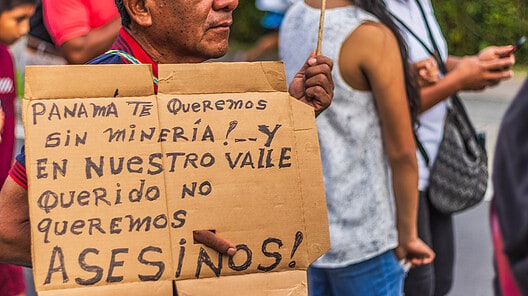 PANAMÁ TE QUEREMOS
SIN MINERÍA!--Y
EN NUESTRO VALLE
QUERIDO NO
QUEREMOS
ASESINOS!